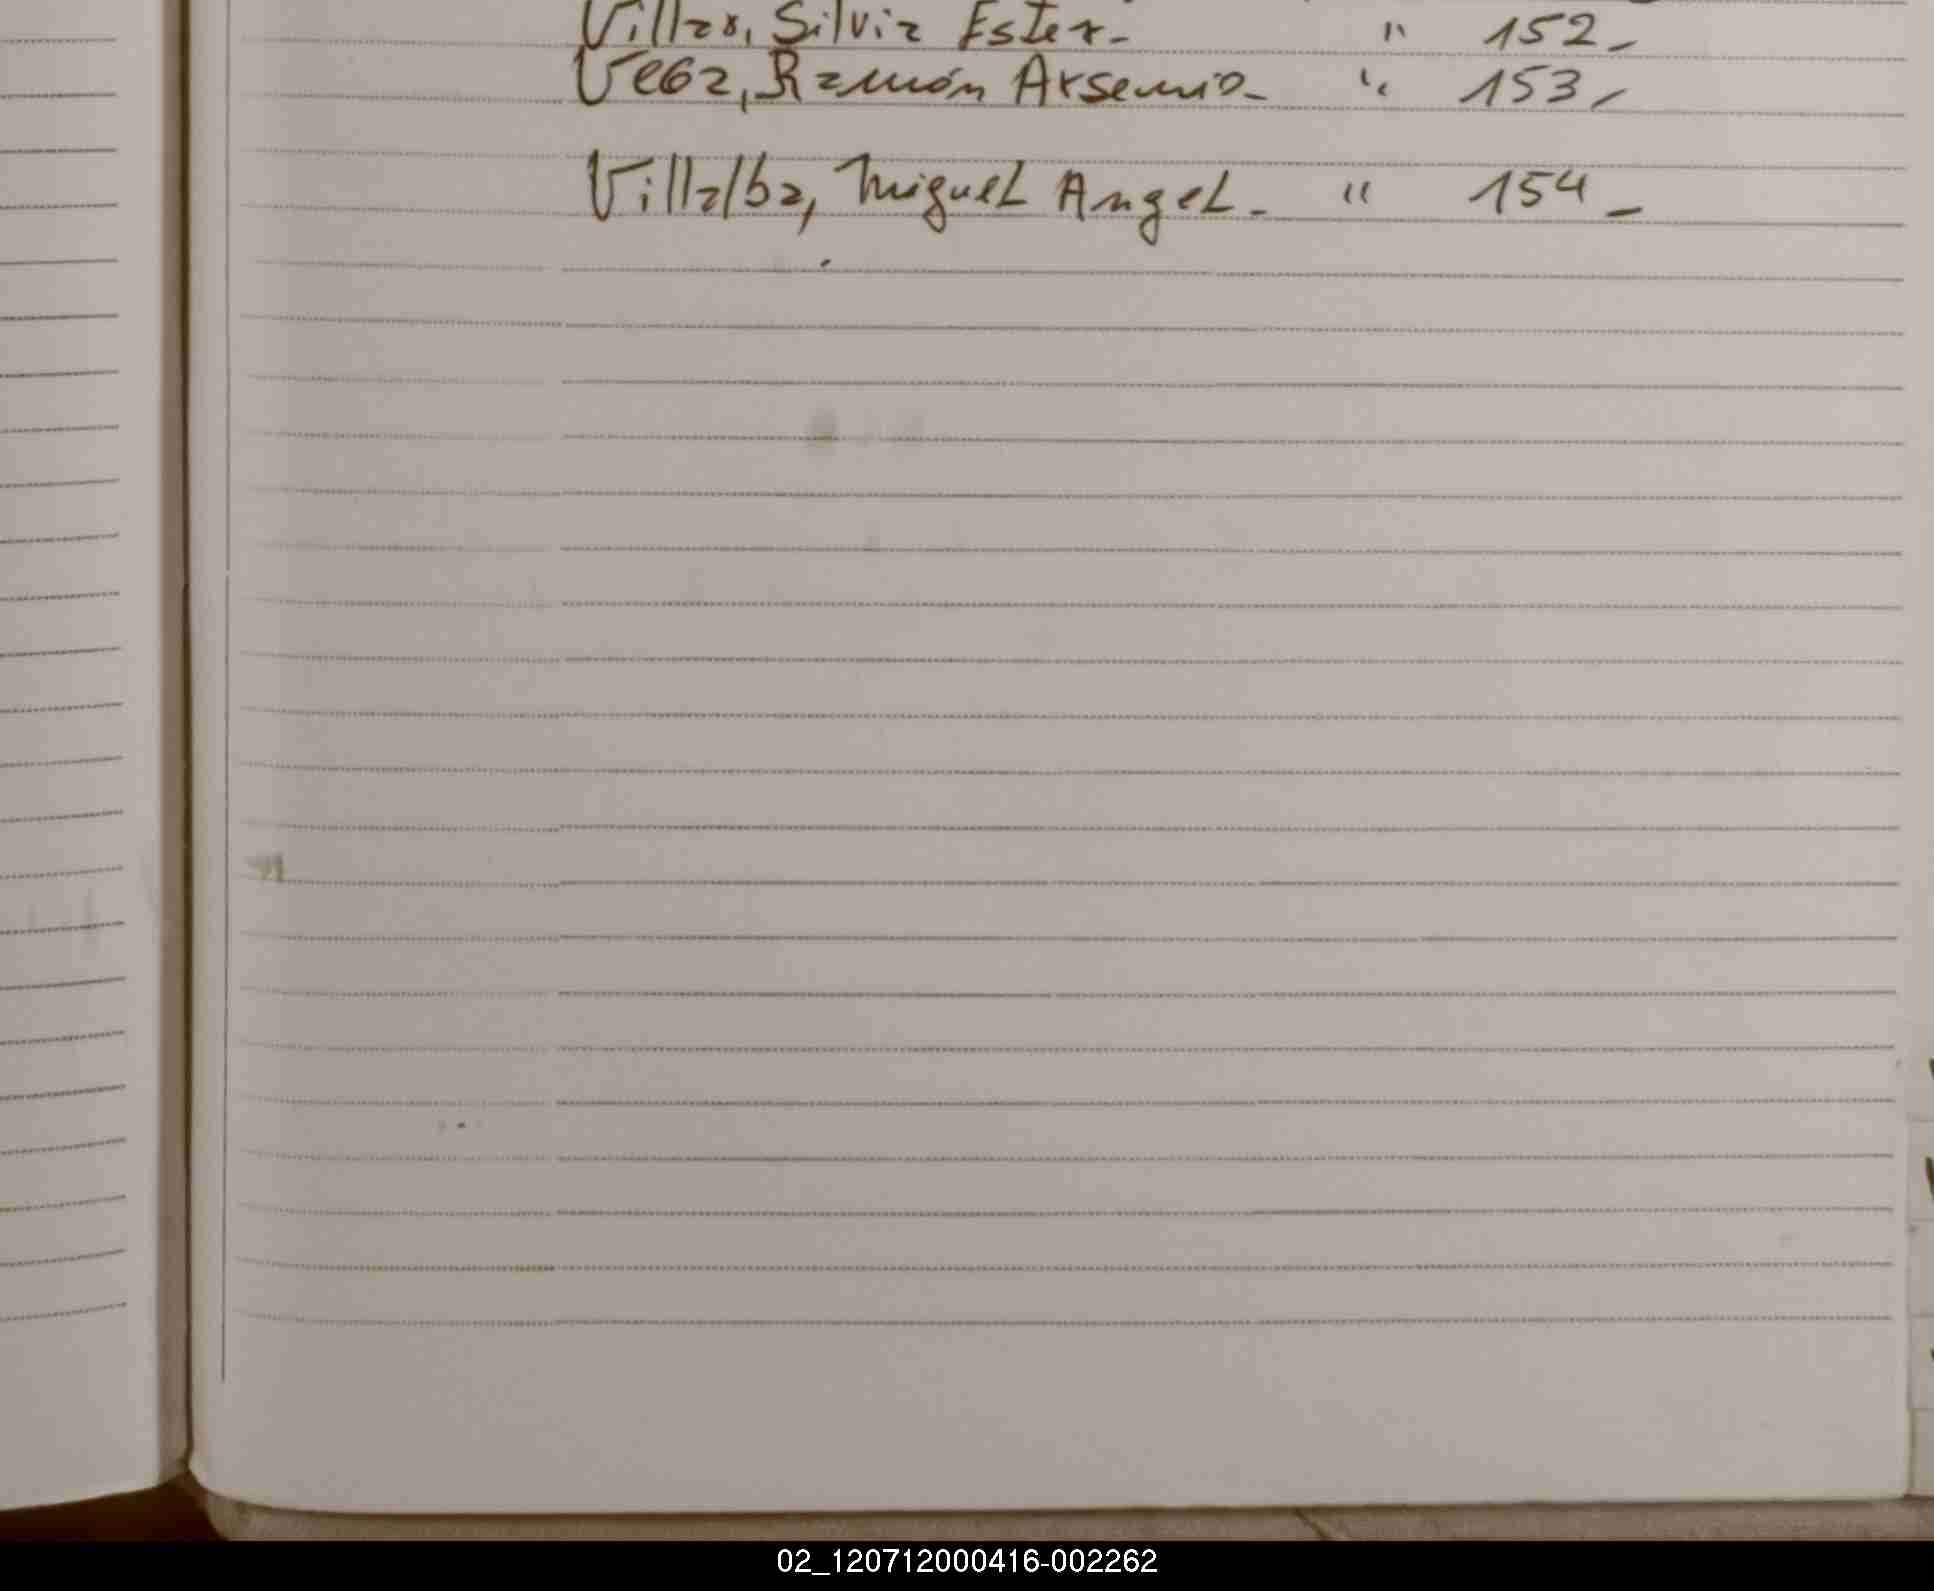 Villar, Silvia Ester- " 152-
Vega, Ramón Arsenio- " 153-
Villalba, Miguel Angel- " 154-
02_120712000416-002262